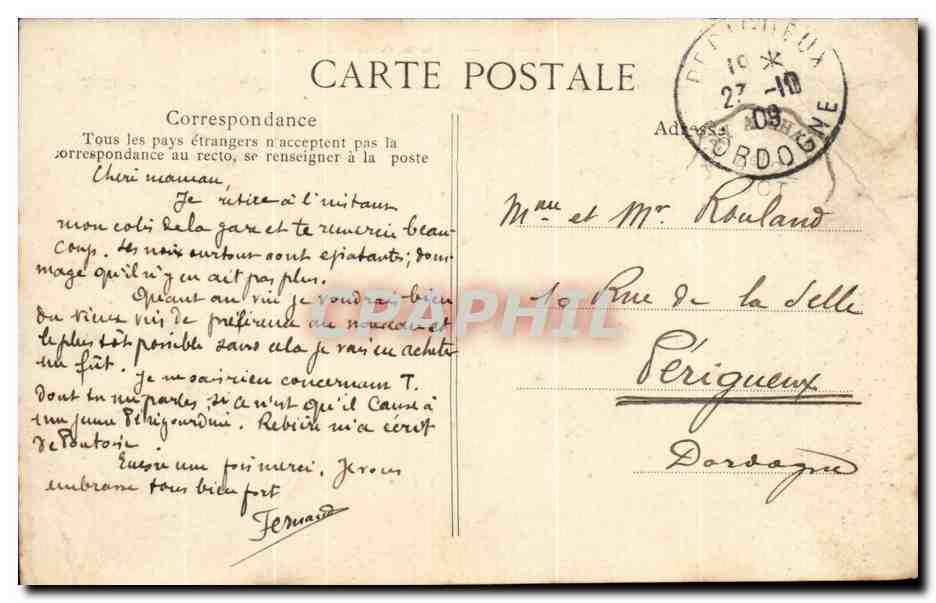 CARTE POSTALE
Correspondance
Tous les pays étrangers n'acceptent pas la
correspondance au recto, se renseigner à la poste
Cheri maman,
Je retire à l'instant
mon colis de la gare et te remercie beau-
coup. Les noix surtout sont epatantes; dom-
mage qu'il n'y en ait pas plus.
Quant au vin je voudrais bien
du vieux vin de préférence au nouveau et
le plus tôt possible sans cela je vais en acheter
un fût.
Je ne sais rien concernant T.
dont tu me parles, si ce n'est qu'il cause à
une jeune Périgourdine. Rebière m'a écrit
de Pontoise
Encore une fois merci. Je vous
embrasse tous bien fort
Fernand
PERIGUEUX
19 *
23 -10
09
DORDOGNE
Adresse
Mme et Mr. Rouland
10 Rue de la Selle
Périgueux
Dordogne
CPAPHIL